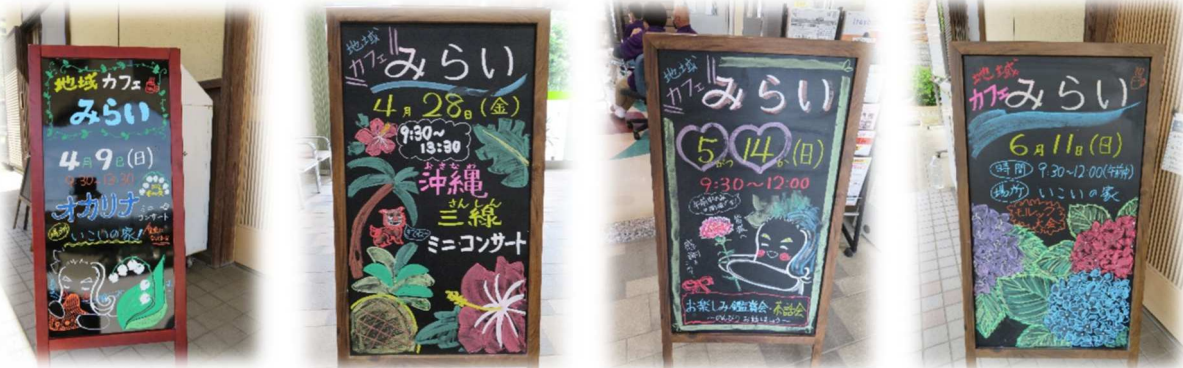 地域カフェ
みらい
4月9日(日)
9:30~13:30
オカリナ
コンサート
場所
いこいの家!
地域
カフェ
みらい
4月28日(金)
9:30~
13:30
おきなわ
沖縄
さんしん
三線
ミニ・コンサート
地域
カフェ
みらい
5がつ14か(日)
9:30~12:00
お楽しみ鑑賞会・茶話会
地域
カフェ
みらい
6月11日(日)
時間 9:30~12:00(午前中)
場所 いこいの家